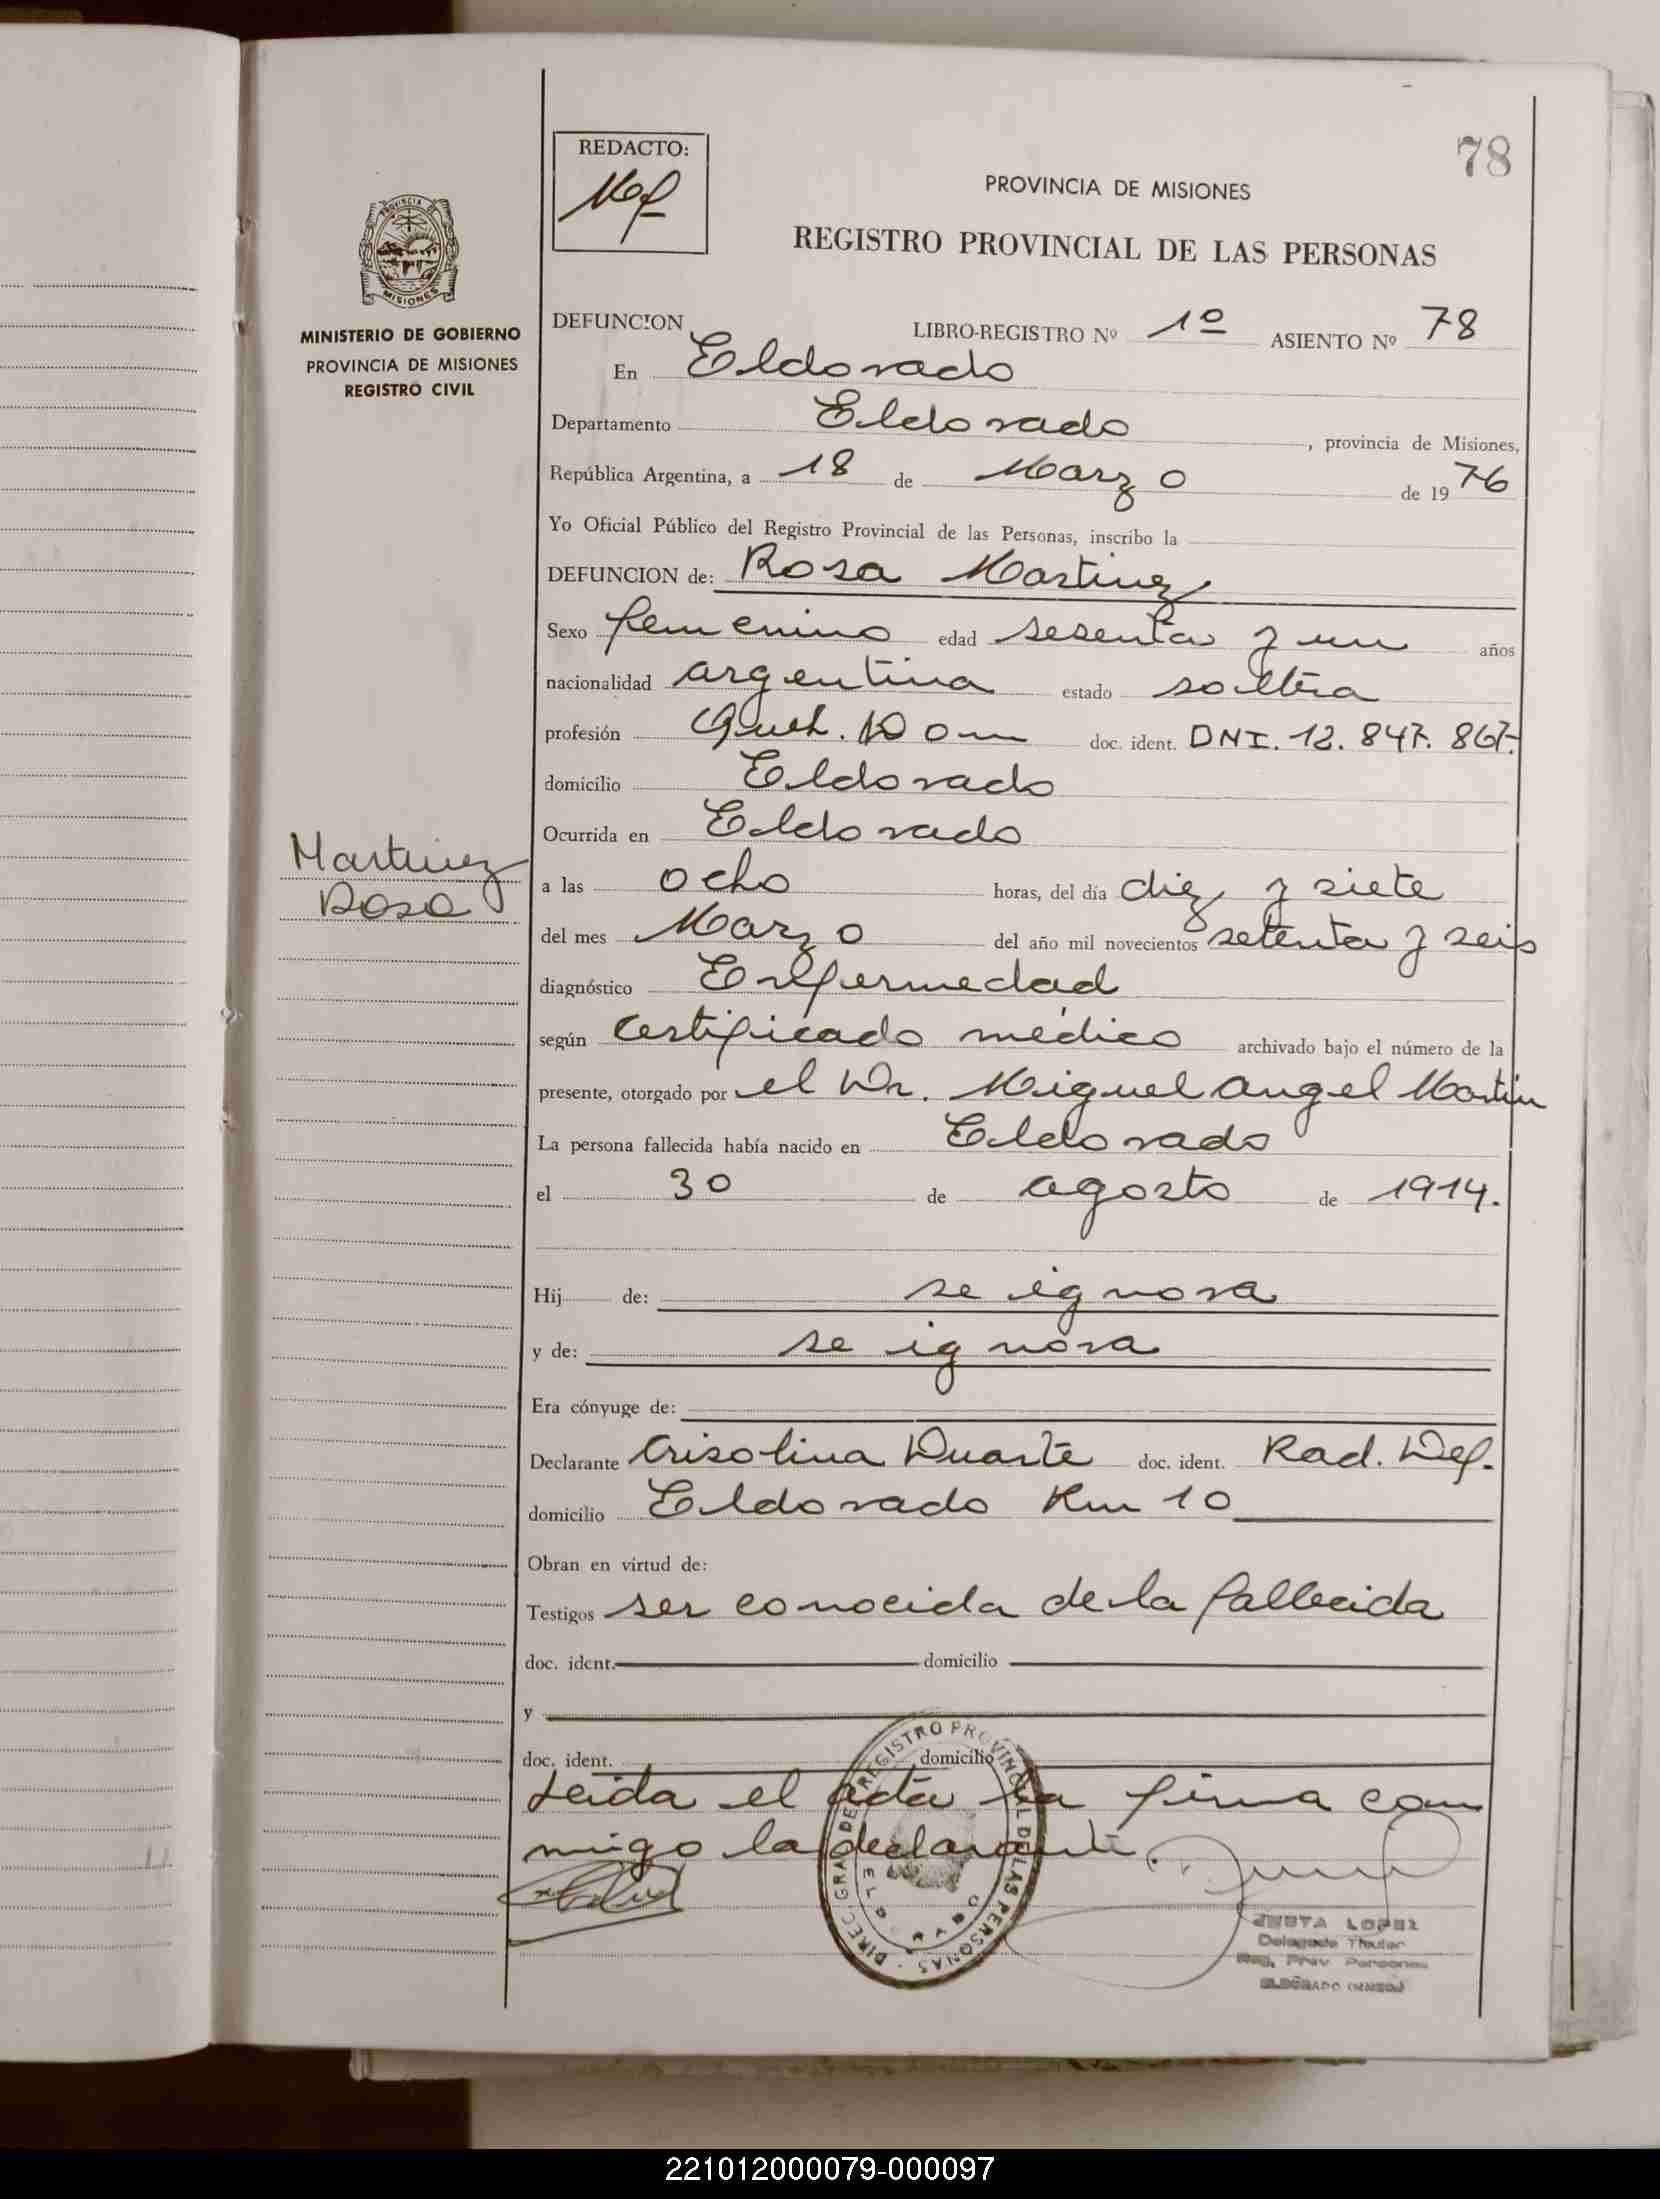 78
REDACTO:
PROVINCIA DE MISIONES
REGISTRO PROVINCIAL DE LAS PERSONAS
PROVINCIA DE
MISIONES
MINISTERIO DE GOBIERNO
PROVINCIA DE MISIONES
REGISTRO CIVIL
DEFUNCION LIBRO-REGISTRO Nº 1º ASIENTO Nº 78
En Eldorado
Departamento Eldorado, provincia de Misiones,
República Argentina, a 18 de Marzo de 1976
Yo Oficial Público del Registro Provincial de las Personas, inscribo la
DEFUNCION de: Rosa Martinez
Sexo femenino edad sesenta y un años
nacionalidad argentina estado soltera
profesión Queh. Dom doc. ident. DNI. 12.847.867.
domicilio Eldorado
Ocurrida en Eldorado
Martinez
Rosa
a las ocho horas, del día diez y siete
del mes Marzo del año mil novecientos setenta y seis
diagnóstico Enfermedad
según certificado médico archivado bajo el número de la
presente, otorgado por el Dr. Miguel Angel Martin
La persona fallecida había nacido en Eldorado
el 30 de agosto de 1914.
Hij de: se ignora
y de: se ignora
Era cónyuge de:
Declarante Crisolina Duarte doc. ident. Rad. Def.
domicilio Eldorado Km 10
Obran en virtud de:
Testigos ser conocida de la fallecida
doc. ident. domicilio
y
doc. ident. domicilio
Leida el acta la firma con
migo la declarante.
DIREC. GRAL. DE REGISTRO PROVINCIAL DE LAS PERSONAS
ELDORADO
JUSTA LOPEZ
Delegada Titular
Reg. Prov. Personas
ELDORADO (MNES)
221012000079-000097